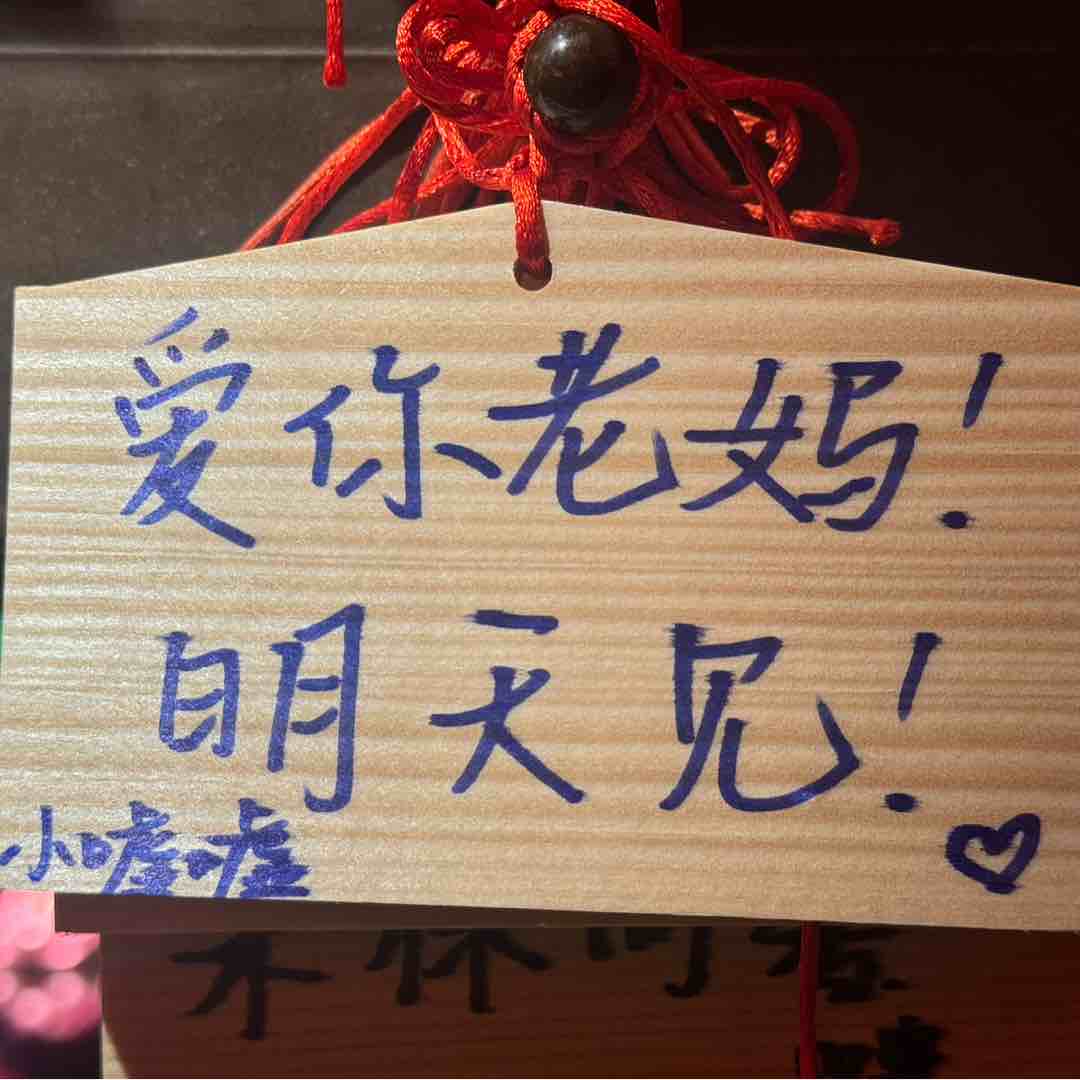 爱你老妈！
明天见！
小嘘嘘